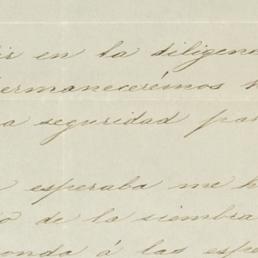 ir en la diligenc
permaneceremos
a seguridad par
esperaba me h
o de la siembra
onda á las espe